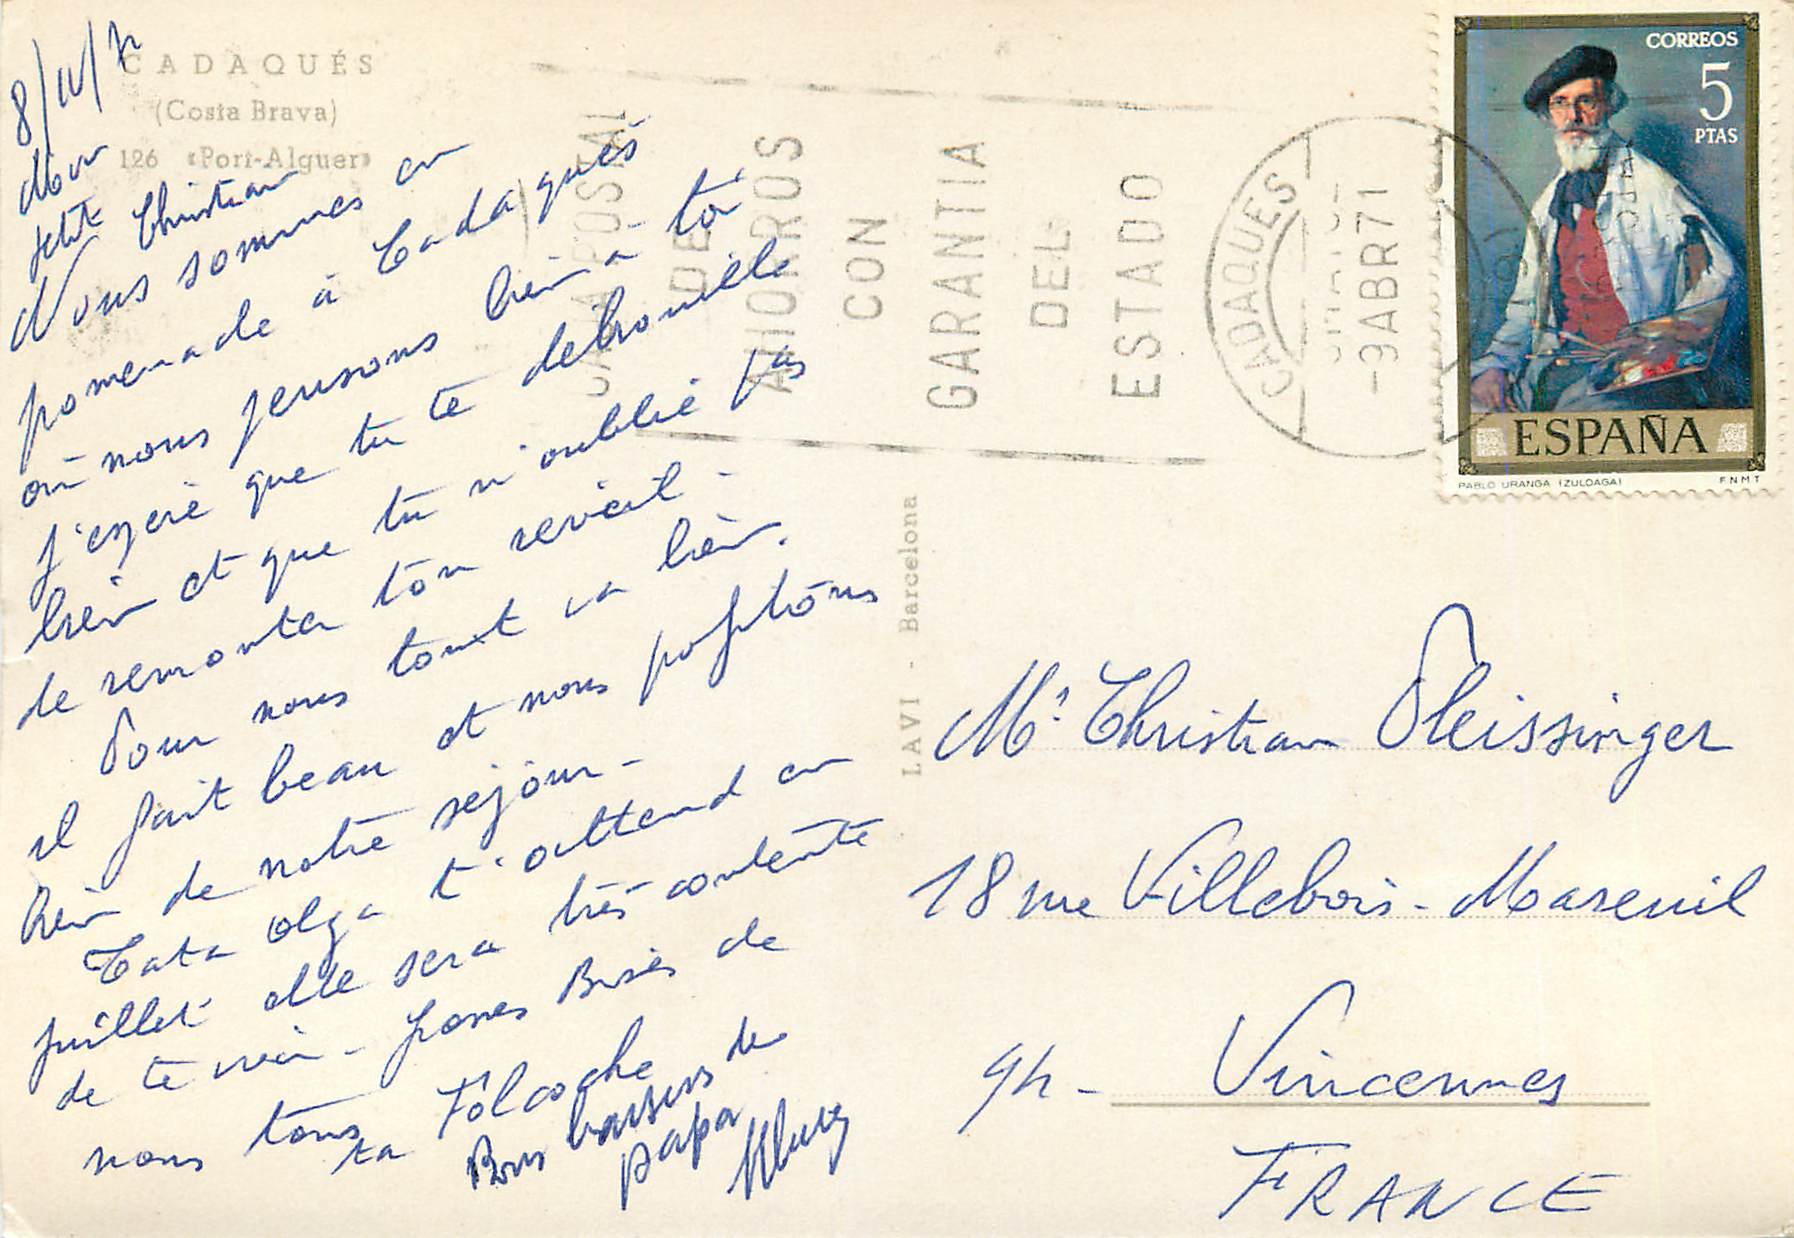 CADAQUÉS
(Costa Brava)
126 «Port-Alguer»
8/IV/71
Mon
petit Christian
Nous sommes en
pomenade à Cadaqués
où nous pensons bien à toi
j'espère que tu te débrouille
bien et que tu n'oublie pas
de remonter ton réveil -
Pour nous tout va bien.
il fait beau et nous profitons
bien de notre séjour -
Tata Olga t'attend en
juillet elle sera très contente
de te voir - Grosses Bises de
nous tous
ta Folcoche
Bons baisers de
papa
LAVI - Barcelona
CAJA POSTAL
DE
AHORROS
CON
GARANTIA
DEL
ESTADO
CADAQUES
-9 ABR 71
CORREOS
5
PTAS
ESPAÑA
PABLO URANGA (ZULOAGA)
F N M T
Mr Christian Pleissinger
18 rue Villebois-Mareuil
94 - Vincennes
FRANCE